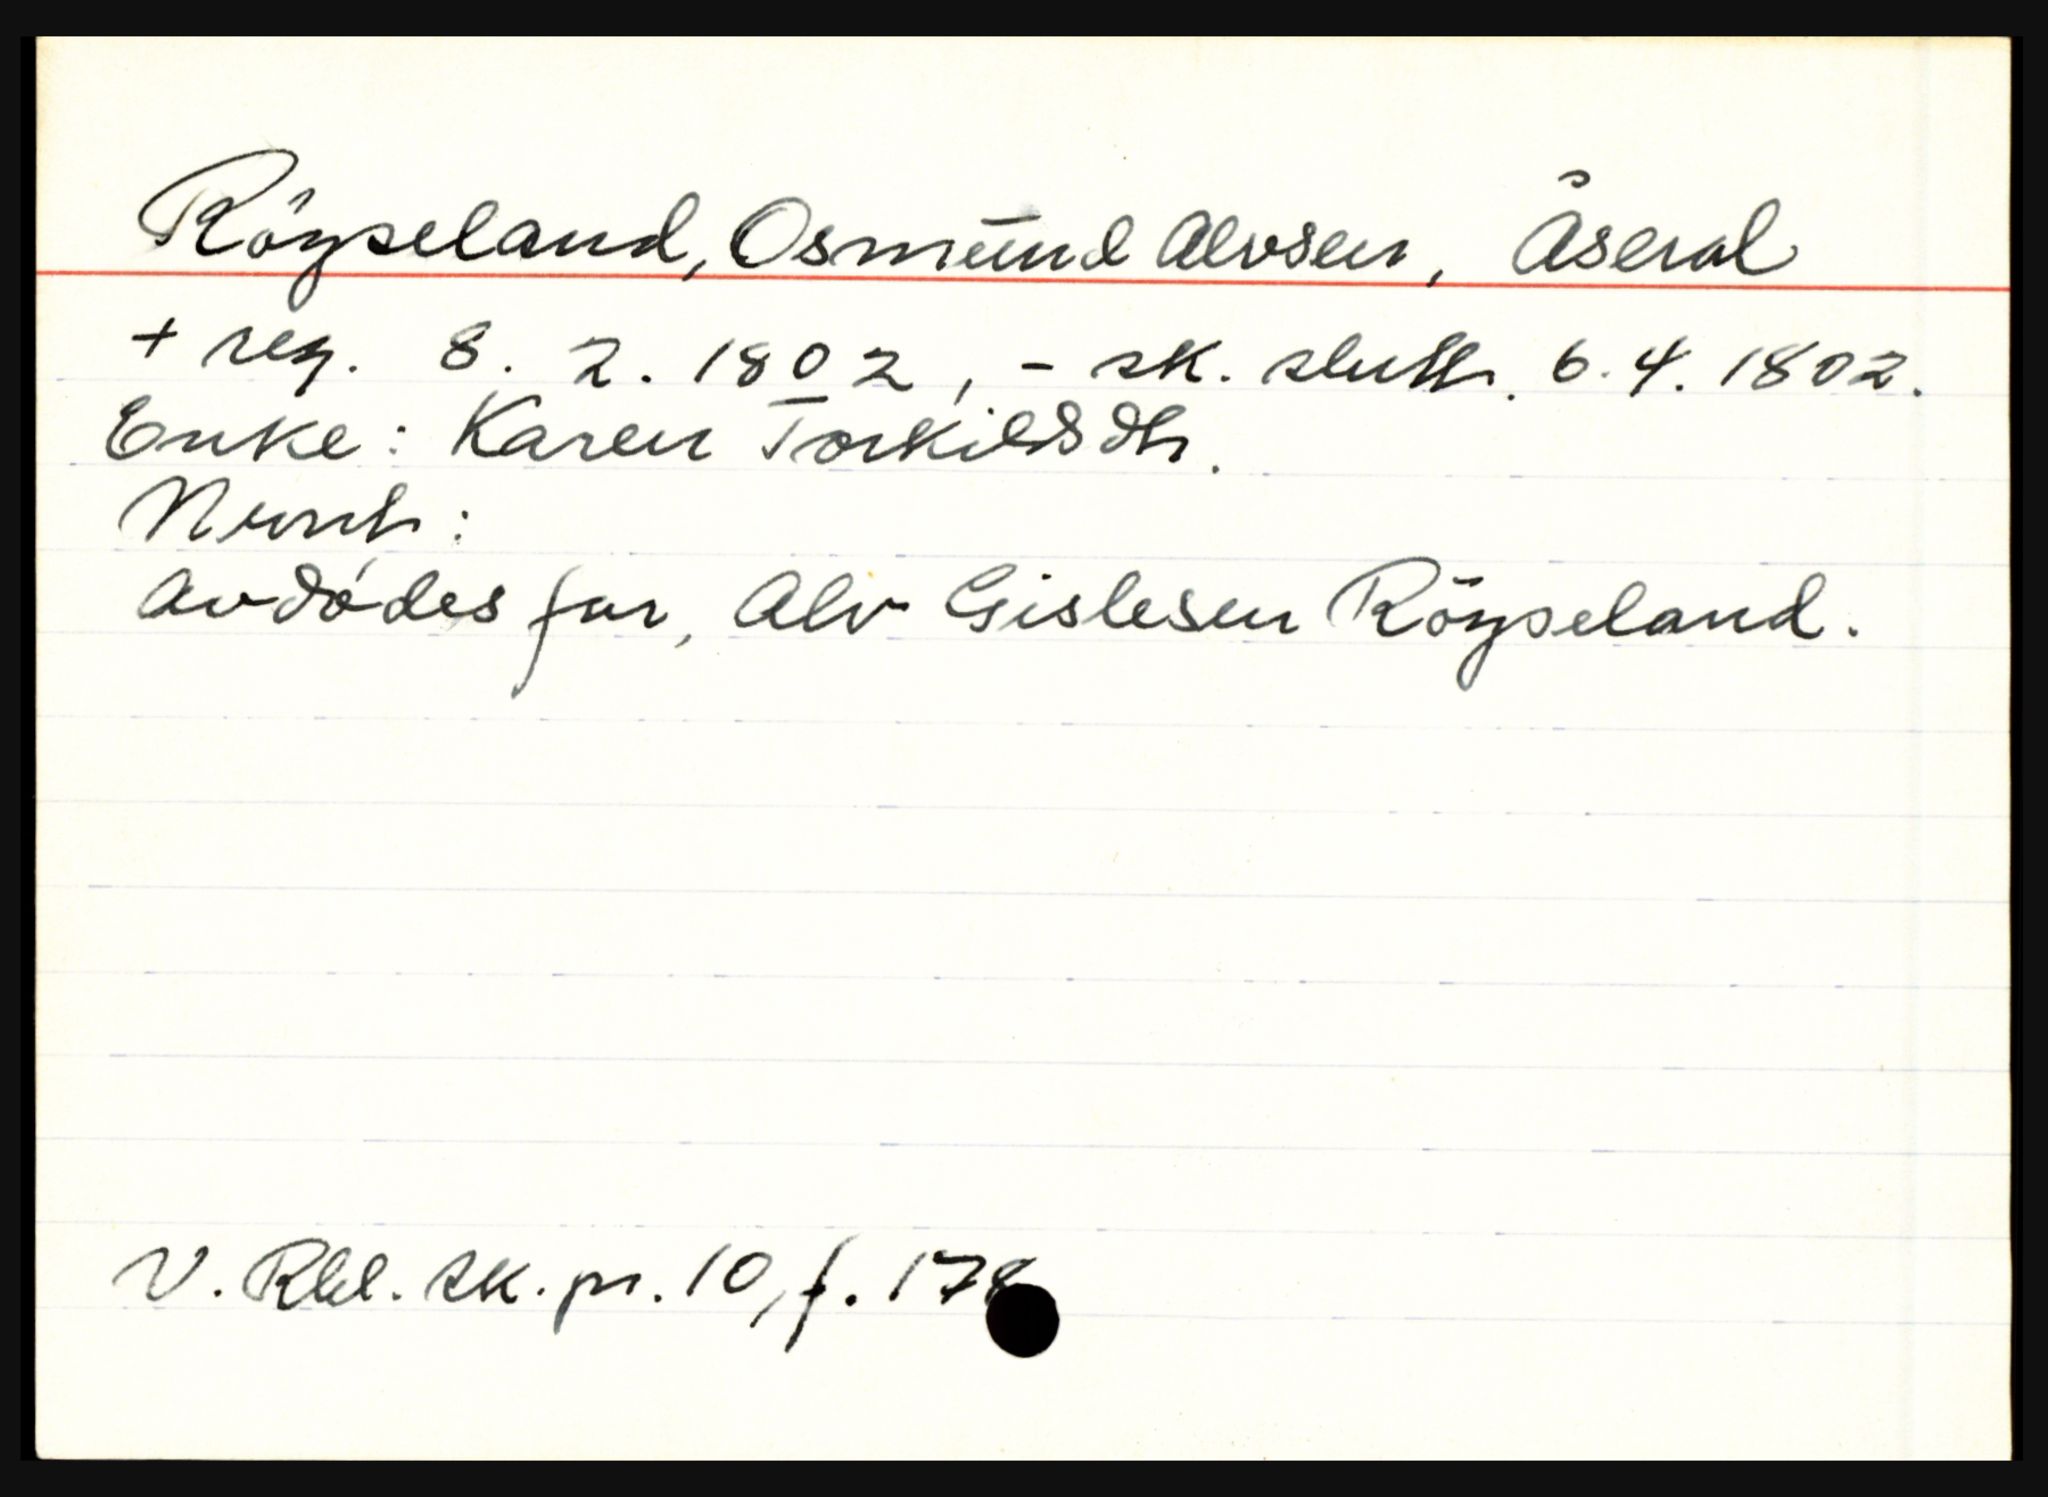 Röyseland, Osmund Alvsen, Åseral
+ reg. 8. 2. 1802, - sk. slutt. 6. 4. 1802.
Enke: Karen Torkildsdtr.
Av dødes far, Alv Gislesen Röyseland.
V. Rbl. sk. pr. 10, f. 178